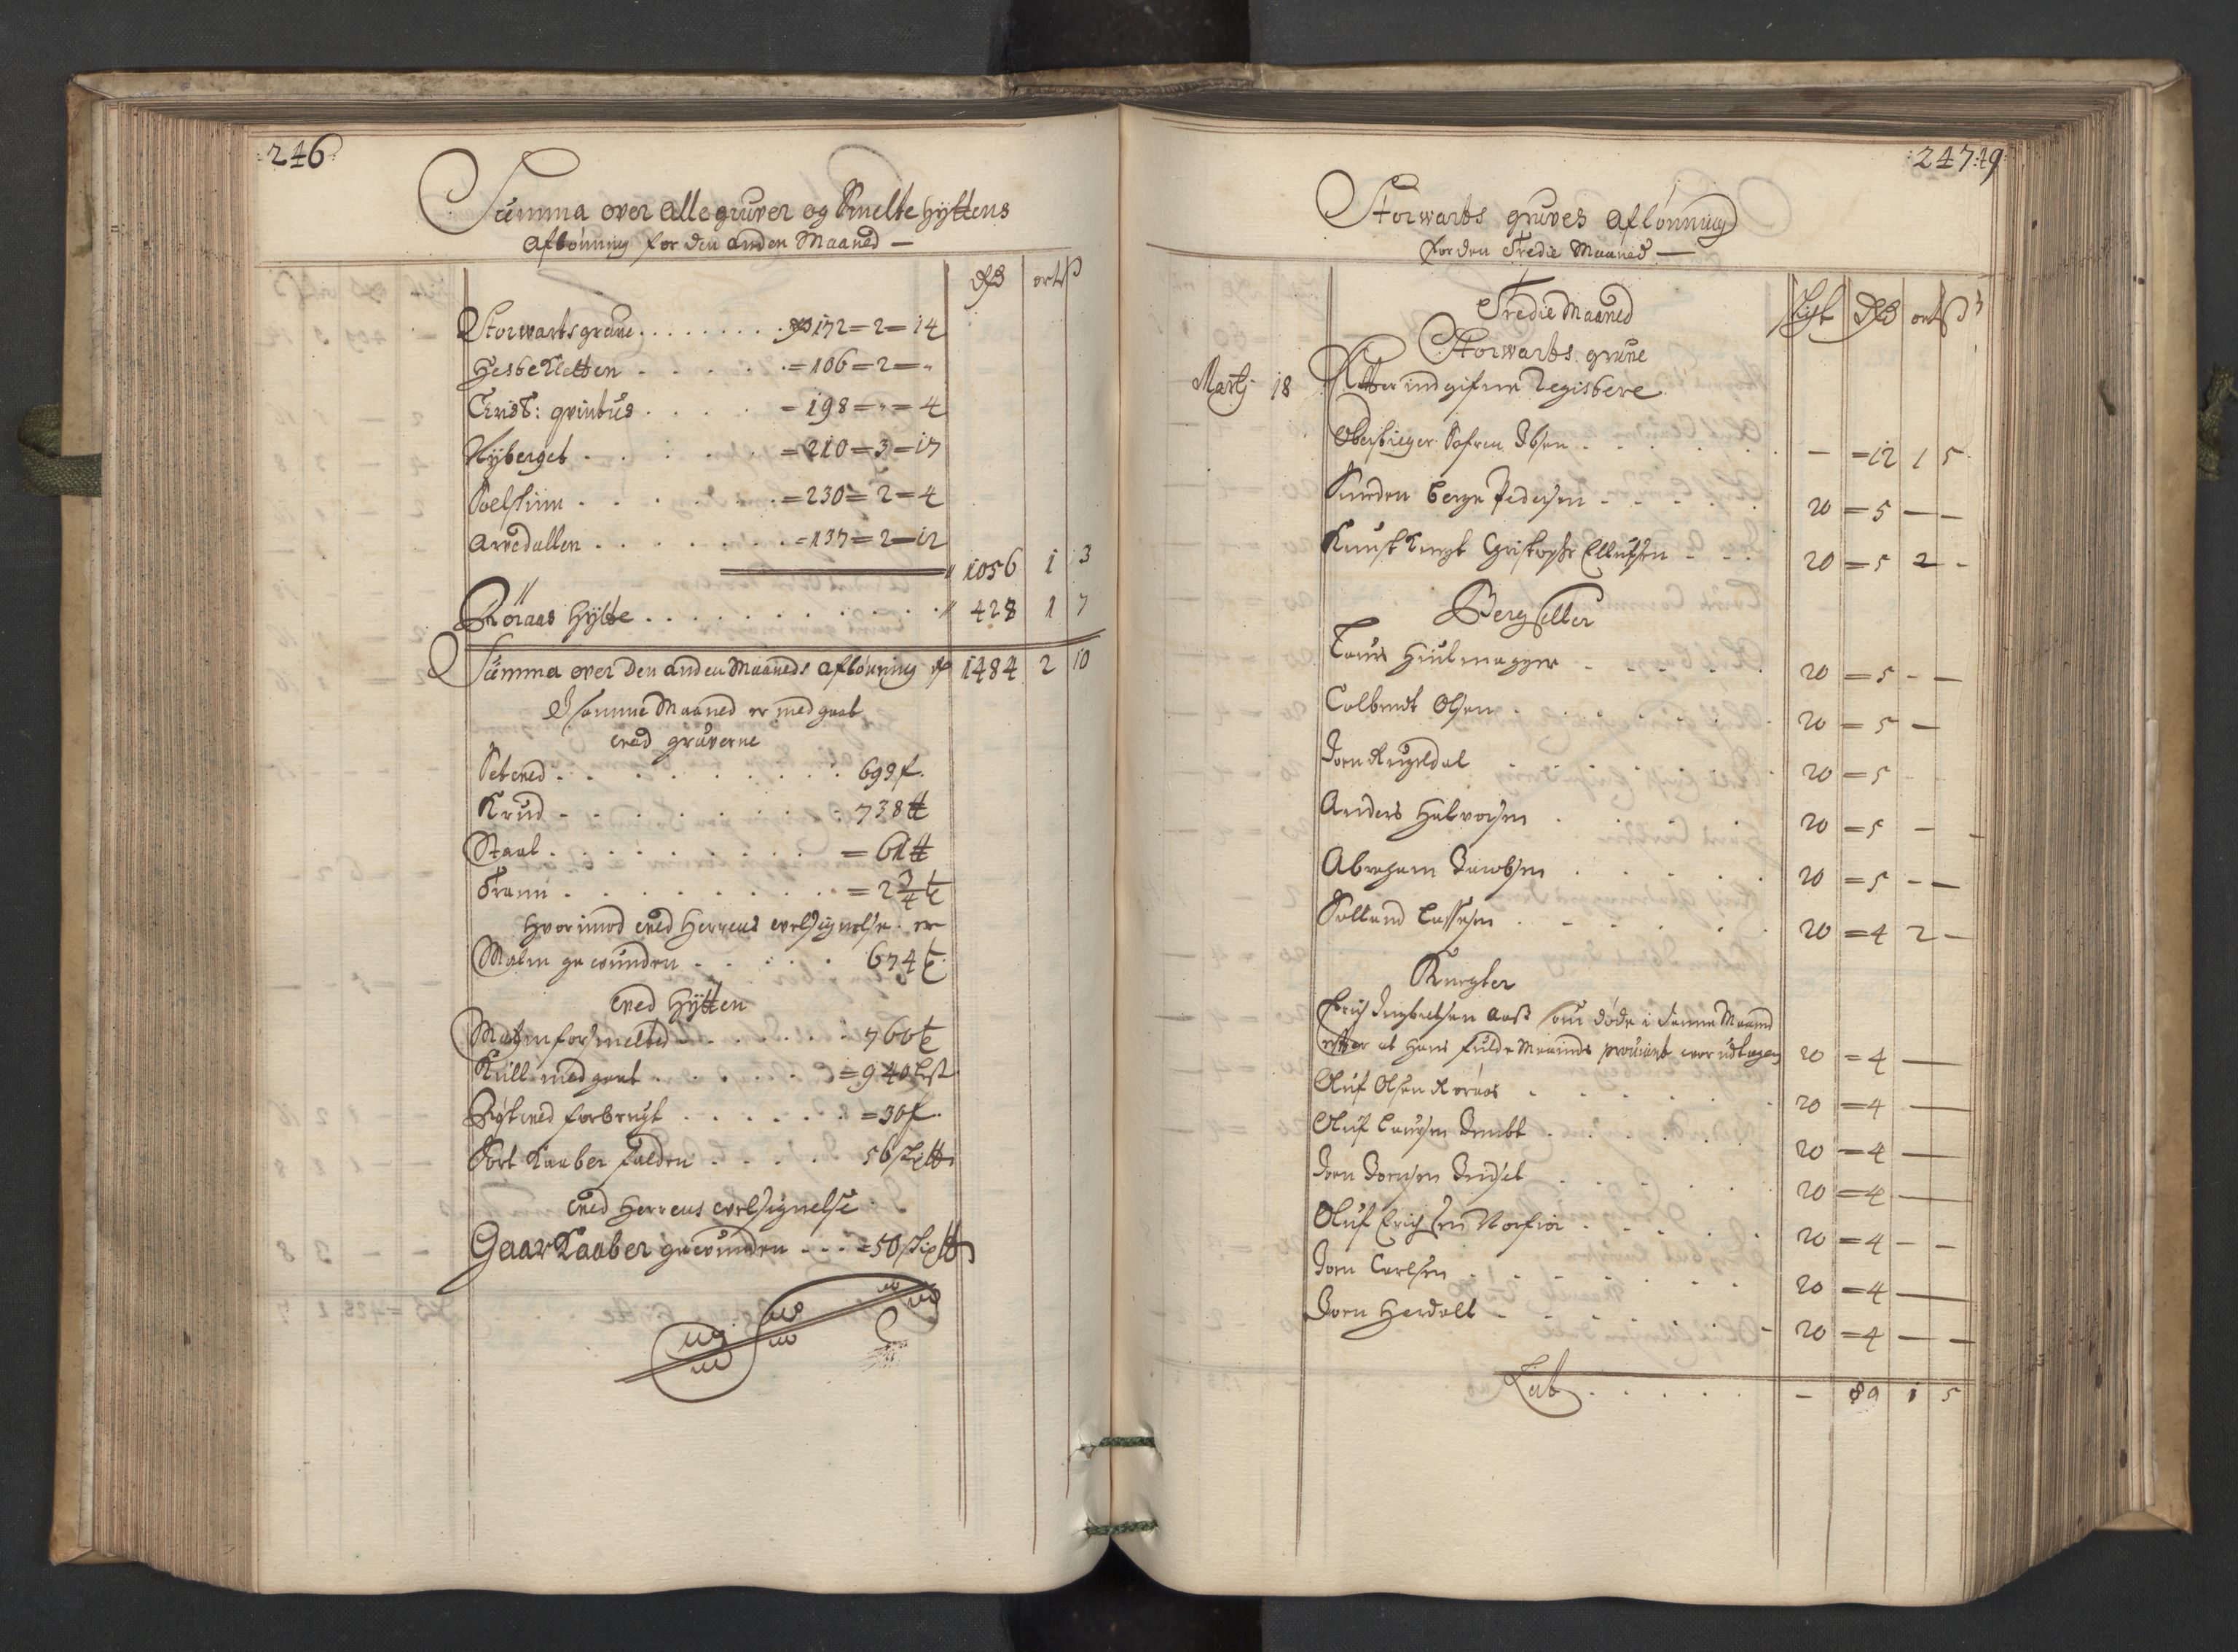 :246:
Summa over alle gruver og Smelte Hyttens
Aflønning for den anden Maaned —
Rd ort ß
Storwarts gruve . . . . . . . . . Rd 172 = 2 = 14
Hestekletten . . . . . . = 106 = 2 = -
Christ: qvintus . . . . . = 198 = - = 4
Nyberget . . . . . . . = 210 = 3 = 17
Soelskiin . . . . . . . = 230 = 2 = 4
Arvedallen . . . . . . . = 137 = 2 = 12
" 1056 1 3
Røraas Hytte . . . . . . . . . . . " 428 1 7
Summa over den anden Maaneds aflønning Rd 1484 2 10
I samme Maaned er medgaat
ved gruverne
Setved . . . . . . . . . . 699 f.
Krud . . . . . . . . . . 738 ℔
Staal . . . . . . . . . = 61 ℔
Trann . . . . . . . . . = 2 3/4 t
Hvorimod ved Herrens velsignelse er
Malm gewunden . . . . . . 674 t
ved Hytten
Malm forsmelted . . . . . . 760 t
Kull medgaat . . . . . . = 940 Lst
Røstved forbrugt . . . . . . = 30 f.
Sort Kaaber falden . . . . . 56 Sk℔
ved Herrens velsignelse
Gaar Kaaber gewunden . . . = 50 Skip℔
:247:49:
Storwarts gruves aflønning
for den Tredie Maaned —
Skift Rd ort ß
Tredie Maaned
Storwarts gruve
Martij 18 Efter indgifne Registere
Oberstieger Safren Ibsen . . . . . — = 12 1 5
Smeden Berge Pedersen . . . . 20 = 5 — —
Kunst Knegt Christopher Ellufsen . . . 20 = 5 2 -
Berg Seller
Laurs Hiulmagger . . . . . 20 = 5 - —
Colbendt Olsen . . . . . . . 20 = 5 —
Joen Rugeldal . . . . . . 20 = 5 - -
Anders Halvorsen . . . . . 20 = 5 — —
Abraham Jacobsen . . . . . 20 = 5 - —
Salland Lassesen . . . . . . 20 = 4 2 —
Knegter
Erich Ingbretsen Aas som døde i denne Maaned
efter at hans fulde Maaneds proviant var udtagen 20 = 4 —
Oluf Olsen Røraas . . . . . . 20 = 4 —
Oluf Laursen . . . . . . 20 = 4 —
Joen Joensen . . . . . . 20 = 4 —
Oluf Erichsen . . . . . 20 = 4 — —
Joen Carlsen . . . . . . . 20 = 4 —
Joen Herdall . . . . . . . 20 = 4 — —
Lat . . . . . . — 89 1 5